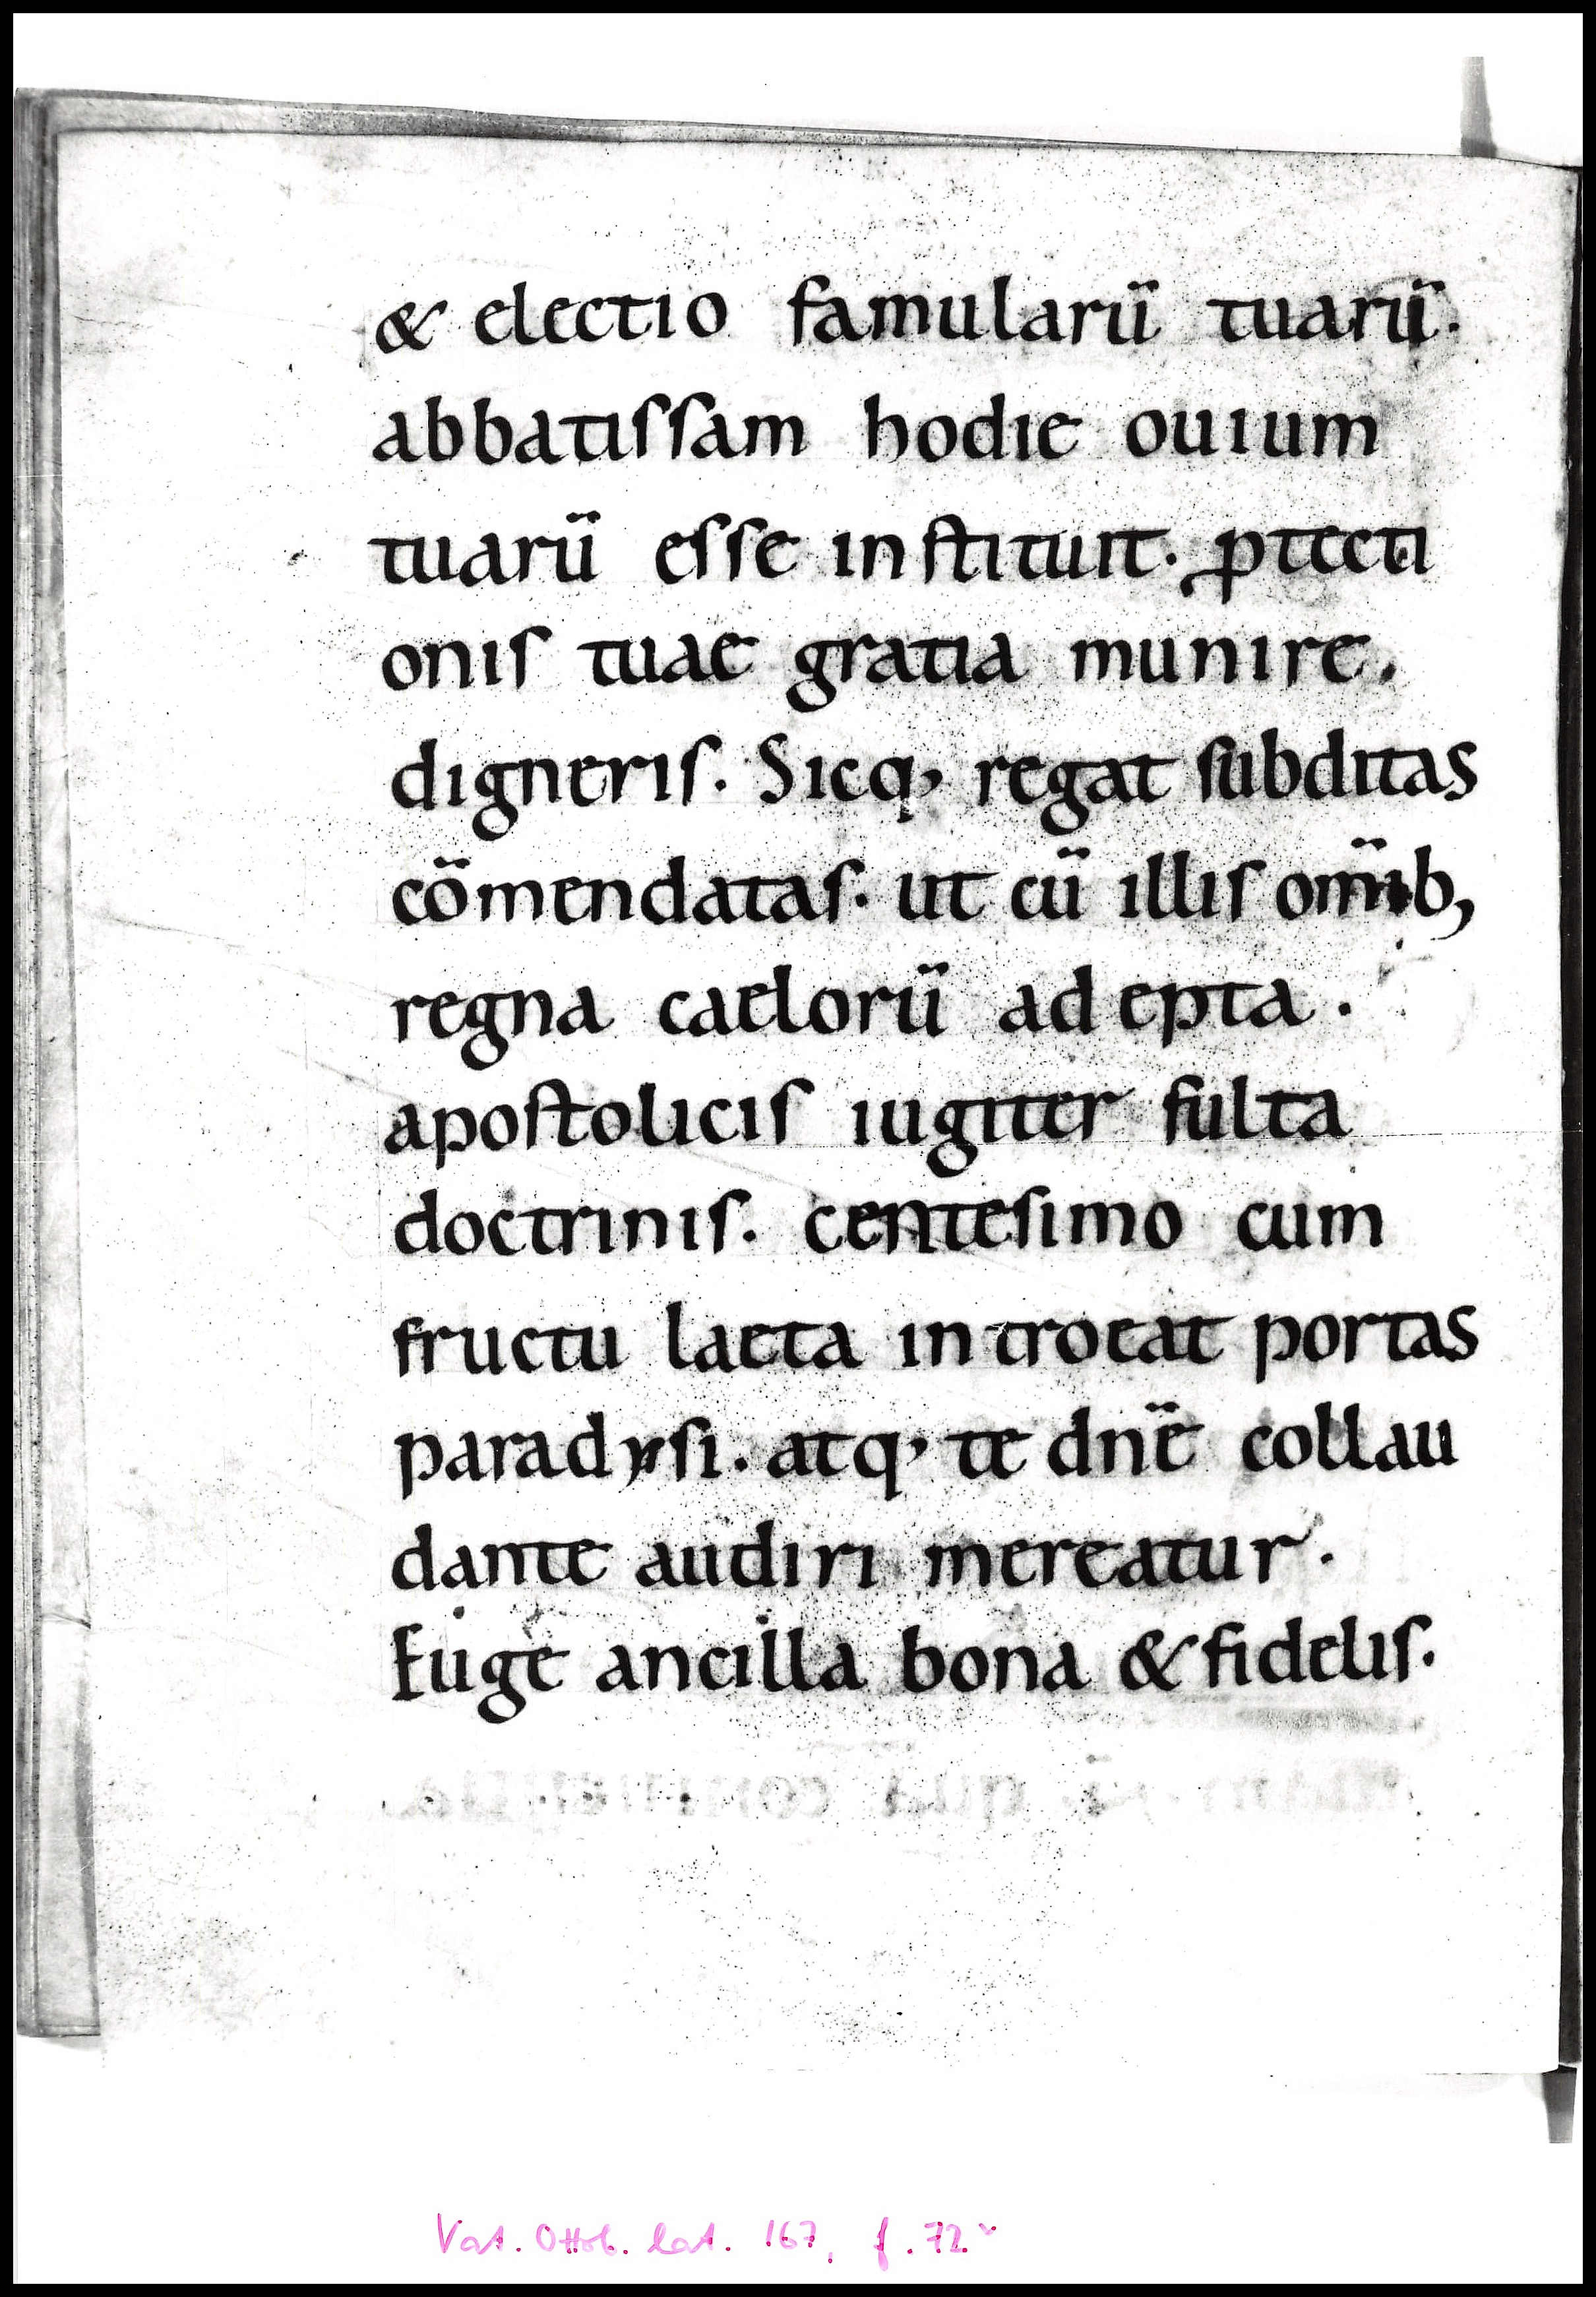 & electio famularū tuarū.
abbatiſſam hodie ouium
tuarū eſſe inſtituit. ꝓtecti
oniſ tuae gratia munire.
digneriſ. Sicq, regat ſubditas
cōmendataſ. ut cū illiſ omīb,
regna caelorū adepta.
apoſtoliciſ iugiter fulta
doctriniſ. centeſimo cum
fructu laeta introeat portas
paradyſi. atq, te dnē collau
dante audiri mereatur.
Euge ancilla bona & fideliſ.
Vat. Ottob. lat. 167, f. 72v